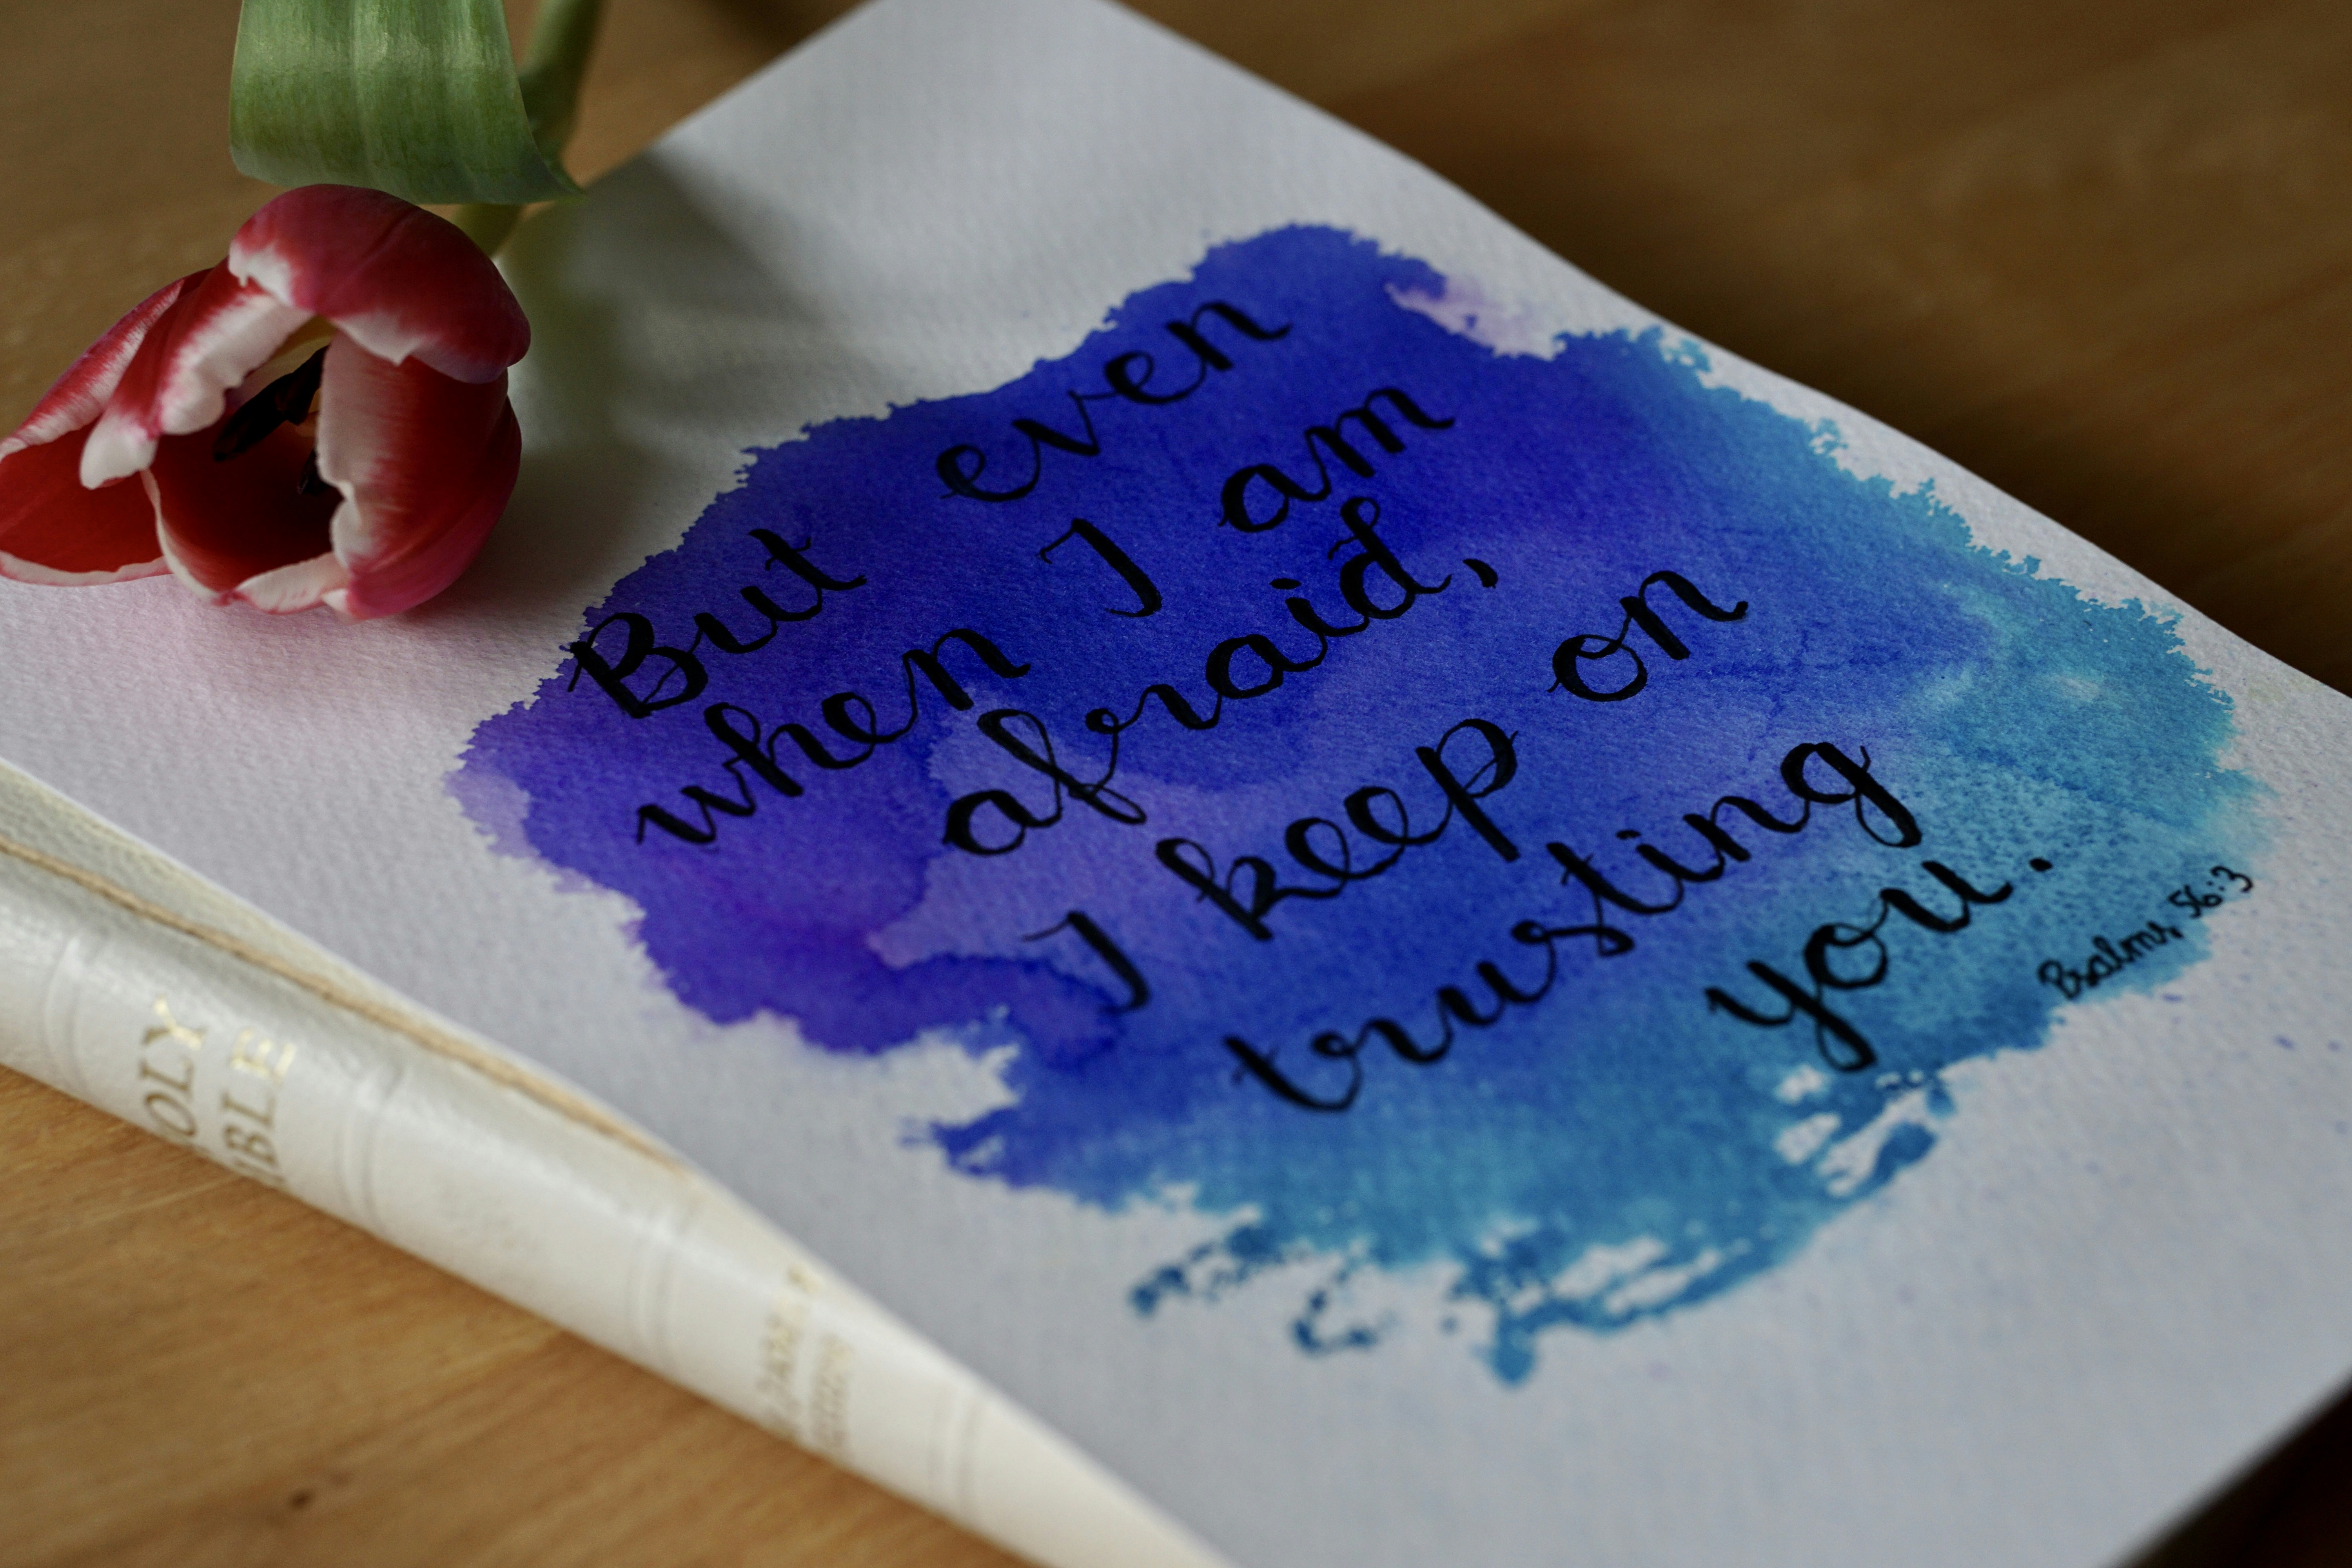 But even
when I am
afraid,
I keep on
trusting
you.
Psalms 56:3
OLY
BLE